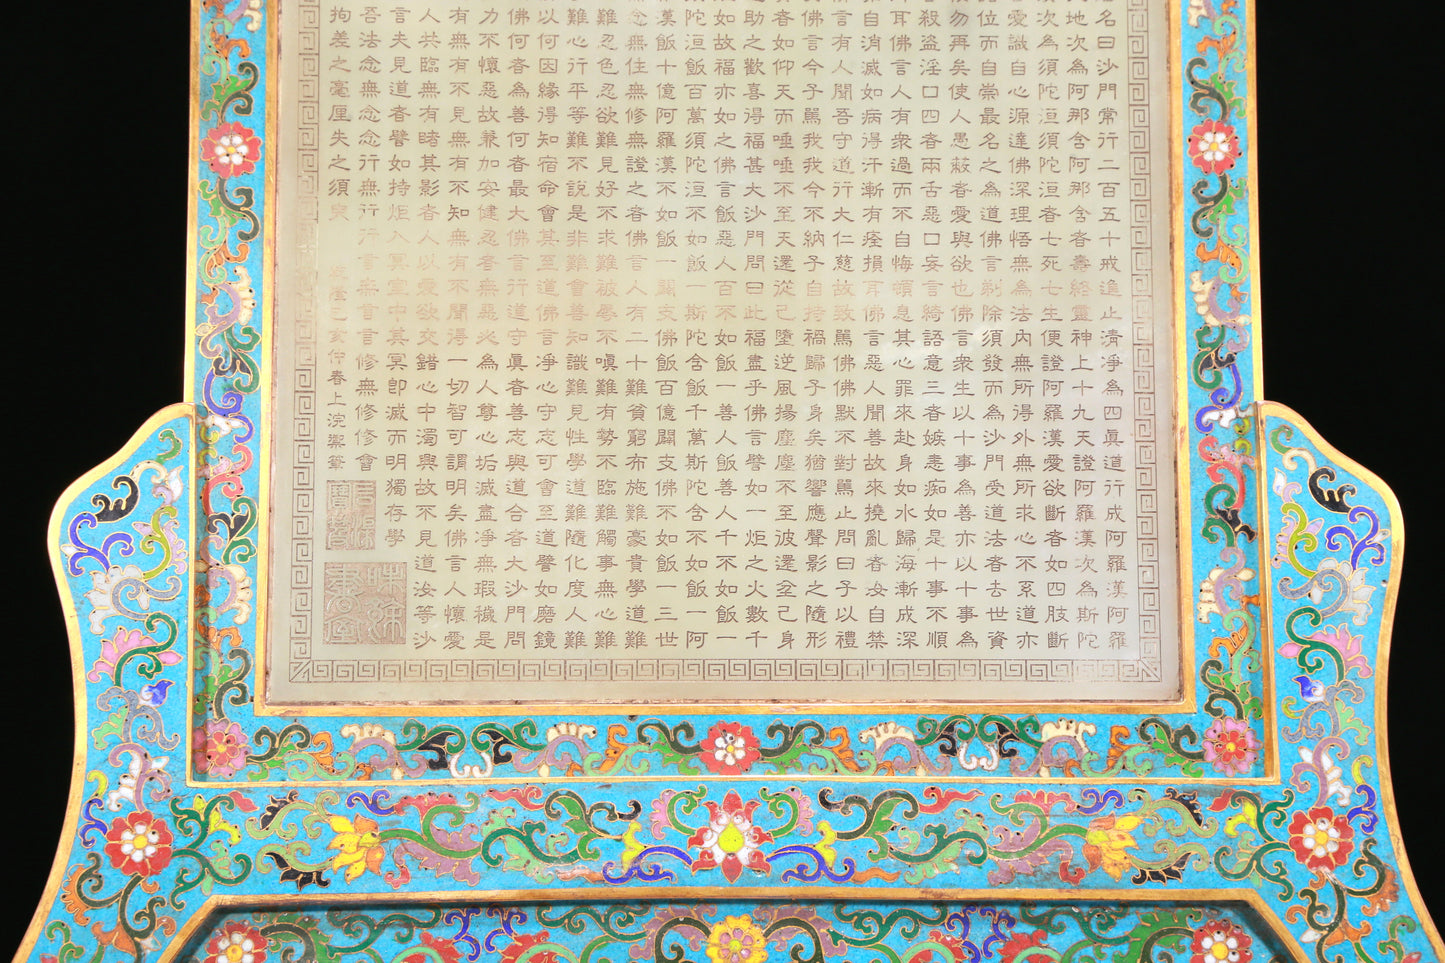 名曰沙門常行二百五十戒進止清淨為四真道行成阿羅漢阿羅
地次為阿那含阿那含者壽終靈神上十九天證阿羅漢次為斯陀
次為須陀洹須陀洹者七死七生便證阿羅漢愛欲斷者如四肢斷
愛識自心源達佛深理悟無為法內無所得外無所求心不系道亦
位而自崇最名之為道佛言剃除須發而為沙門受道法者去世資
勿再矣使人愚蔽者愛與欲也佛言眾生以十事為善亦以十事為
殺盜淫口四者兩舌惡口妄言綺語意三者嫉恚痴如是十事不順
耳佛言人有衆過而不自悔頓息其心罪來赴身如水歸海漸成深
自消滅如病得汗漸有痊損耳佛言惡人聞善故來撓亂者汝自禁
言有人聞吾守道行大仁慈故致罵佛佛默不對罵止問曰子以禮
佛言今子罵我我今不納子自持禍歸子身矣猶響應聲影之隨形
者如仰天而唾唾不至天還從己墮逆風揚塵塵不至彼還坌己身
助之歡喜得福甚大沙門問曰此福盡乎佛言譬如一炬之火數千
如故福亦如之佛言飯惡人百不如飯一善人飯善人千不如飯一
陀洹飯百萬須陀洹不如飯一斯陀含飯千萬斯陀含不如飯一阿
漢飯十億阿羅漢不如飯一闢支佛飯百億闢支佛不如飯一三世
念無住無修無證之者佛言人有二十難貧窮布施難豪貴學道難
難忍色忍欲難見好不求難被辱不嗔難有勢不臨難觸事無心難
難心行平等難不說是非難會善知識難見性學道難隨化度人難
以何因緣得知宿命會其至道佛言淨心守志可會至道譬如磨鏡
佛何者為善何者最大佛言行道守真者善志與道合者大沙門問
力不懷惡故兼加安健忍者無惡必為人尊心垢滅盡淨無瑕穢是
有無有不見無有不知無有不聞得一切智可謂明矣佛言人懷愛
人共臨無有睹其影者人以愛欲交錯心中濁興故不見道汝等沙
言夫見道者譬如持炬入冥室中其冥即滅而明獨存學
吾法念無念念行無行行言無言言修無修修會
拘差之毫厘失之須臾
乾隆己亥仲春上浣御筆